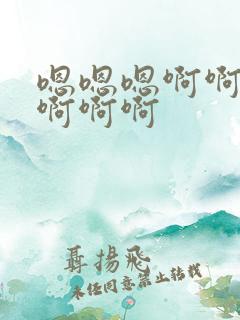 嗯嗯嗯啊啊
啊啊啊
聂扬飞
未经同意禁止转载